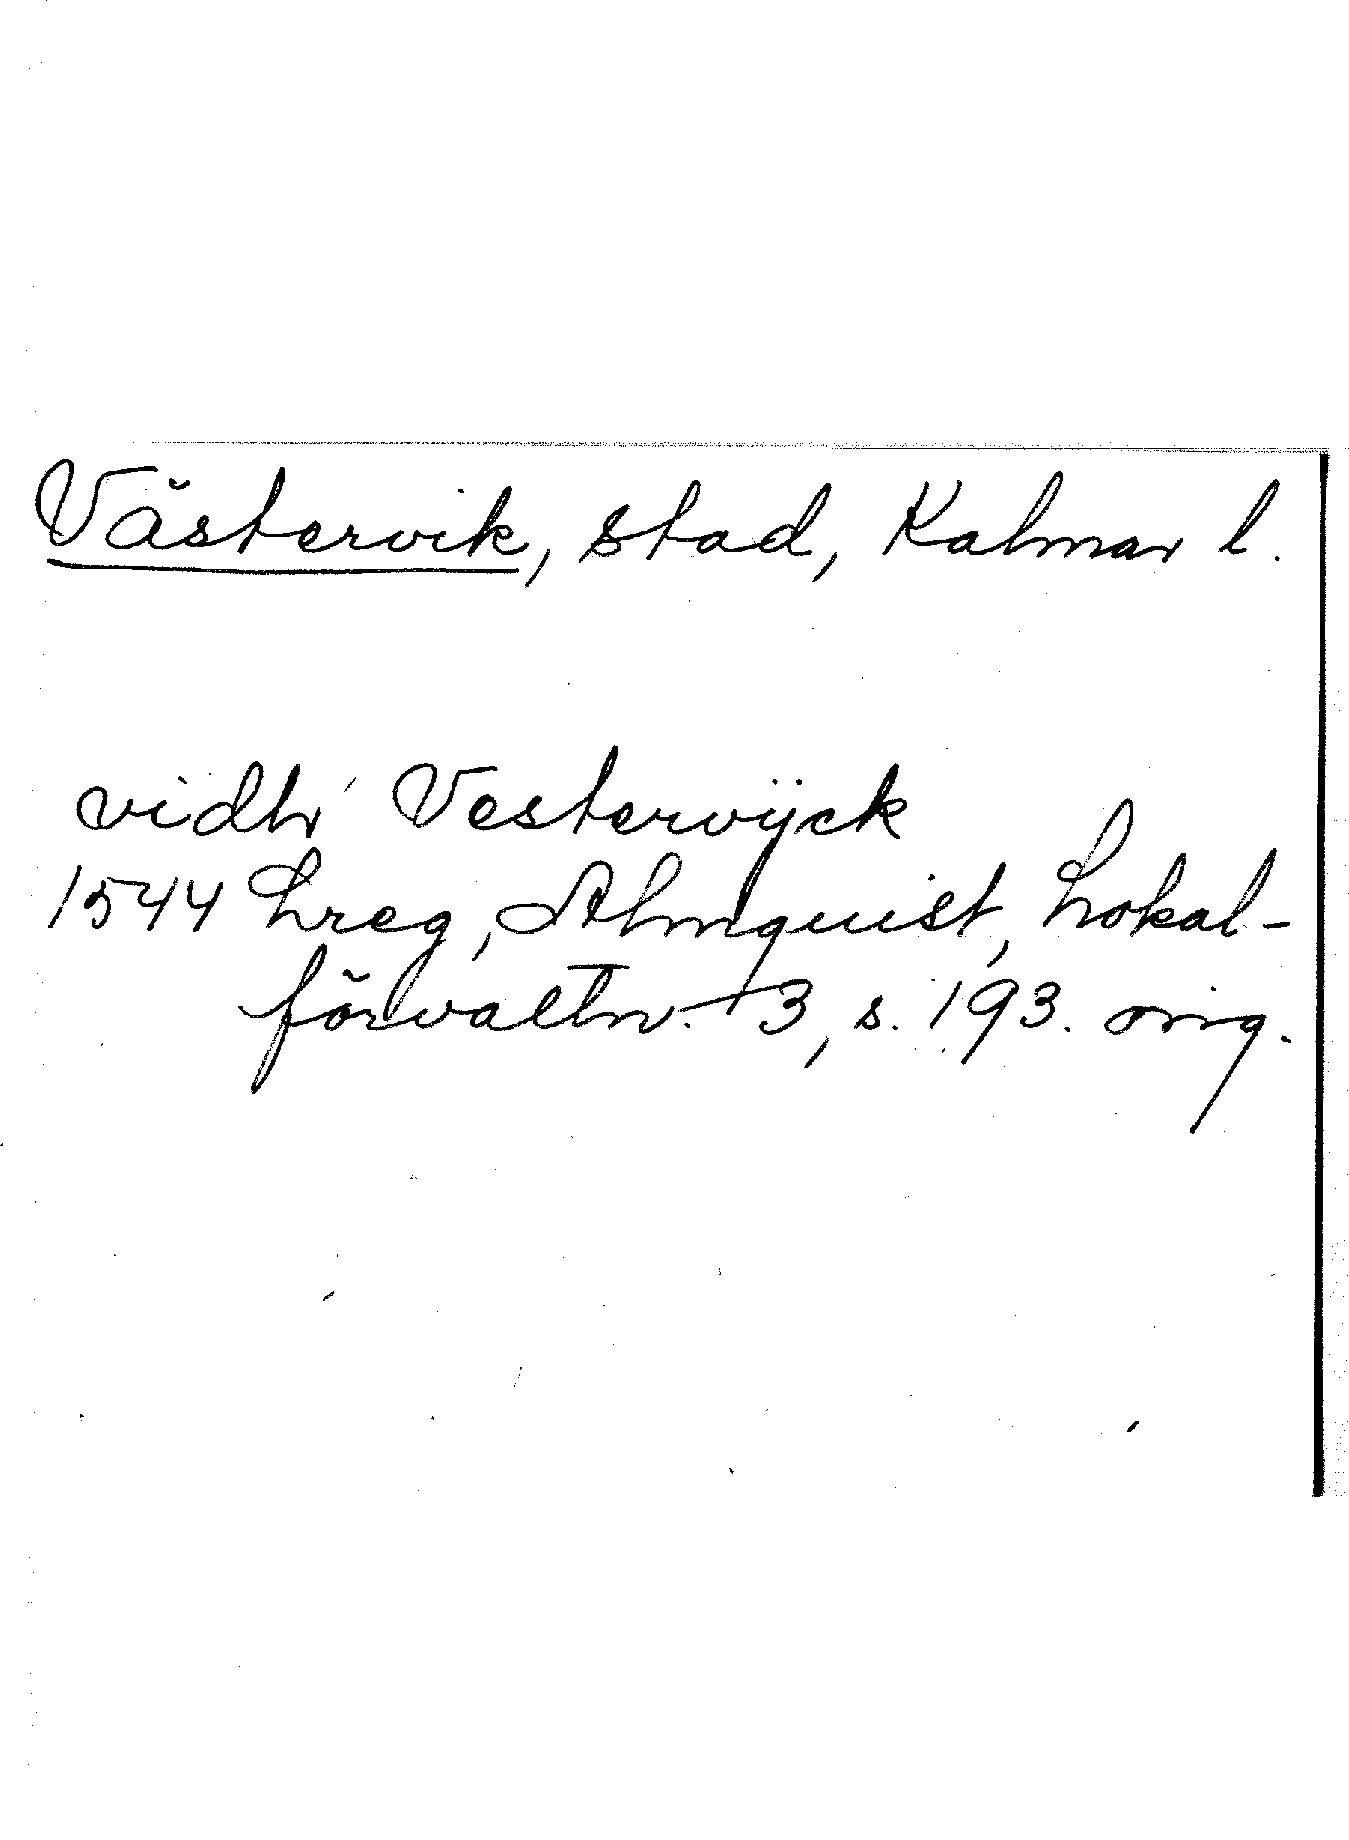 Västervik, stad, Kalmar l.
vidhr Vestervÿck
1544 Lreg, Almquist, Lokal-
förvaltn. 3, s. 193. orig.